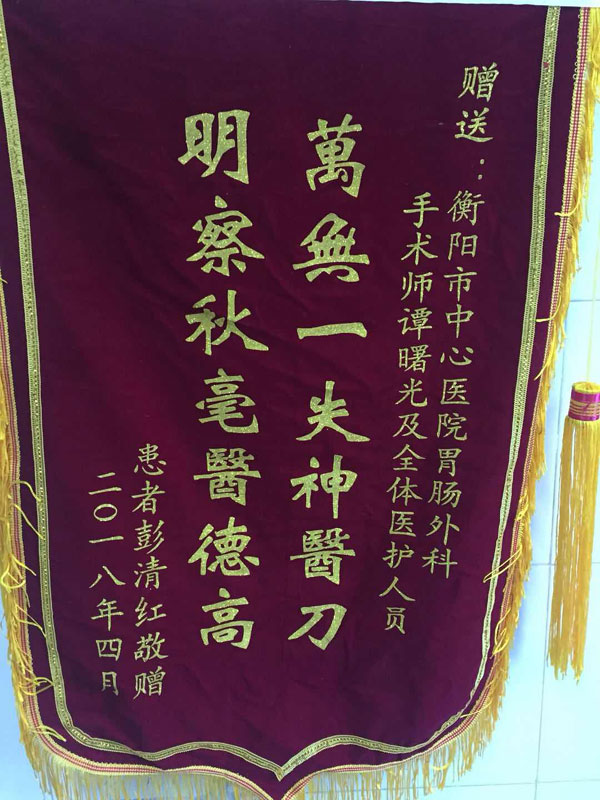 赠送：
衡阳市中心医院胃肠外科
手术师谭曙光及全体医护人员
萬無一失神醫刀
明察秋毫醫德高
患者彭清红敬赠
二〇一八年四月